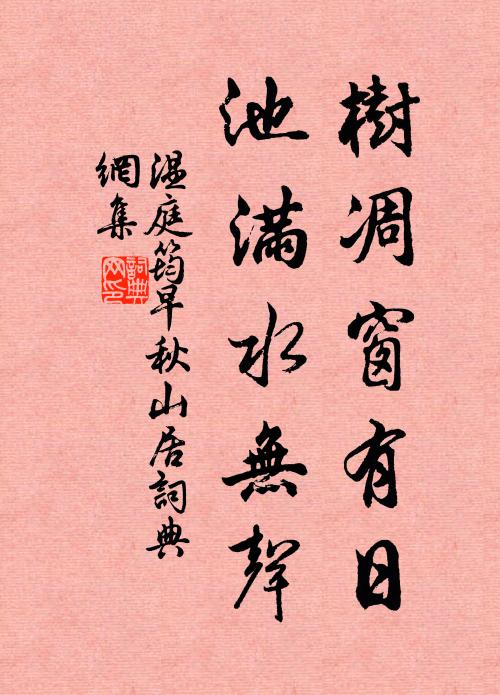 樹凋窗有日
池滿水無聲
温庭筠早秋山居詞典
網集
詞典
网印